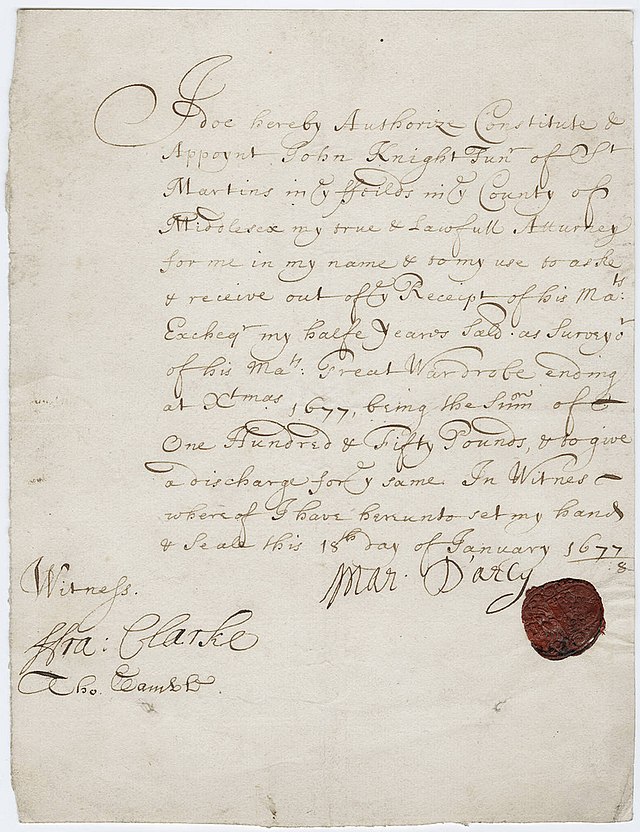 I doe hereby Authorize Constitute &
Appoynt John Knight Junr of St
Martins in ye ffeilds in ye County of
Middlesex my true & Lawfull Atturney
for me in my name & to my use to aske
& receive out of ye Receipt of his Mats:
Excheqr my halfe Years Sald. as Surveyor
of his Mats: Great Wardrobe ending
at Xtmas 1677, being the Sum of
One Hundred & Fifty Pounds, & to give
a discharge for ye same. In Witnes
whereof I have hereunto set my hand
& Seale this 18th day of January 1677/8
Mar. D'arcy
Witness.
ffra: Clarke
Tho.